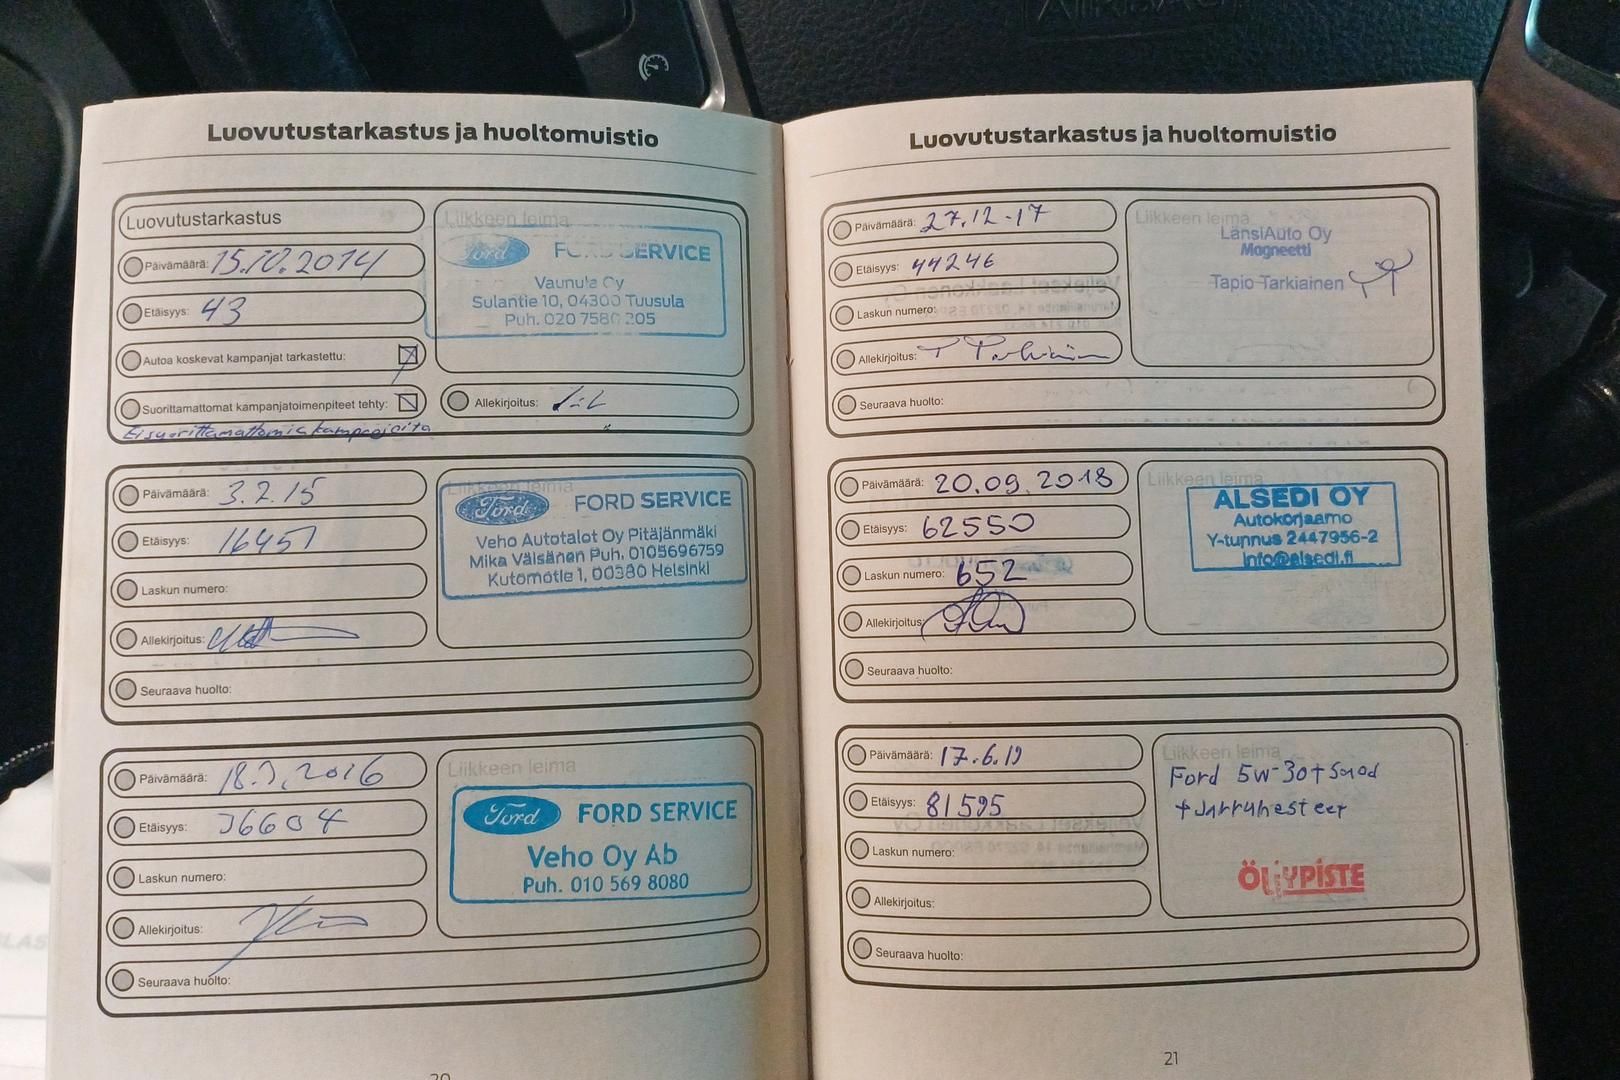 Luovutustarkastus ja huoltomuistio
Luovutustarkastus
Päivämäärä: 15.10.2014
Etäisyys: 43
Autoa koskevat kampanjat tarkastettu:
Suorittamattomat kampanjatoimenpiteet tehty:
Ei suorittamattomia kampanjoita
Liikkeen leima
Ford FORD SERVICE
Vaunula Oy
Sulantie 10, 04300 Tuusula
Puh. 020 7580 205
Allekirjoitus:
Päivämäärä: 3.2.15
Etäisyys: 16451
Laskun numero:
Allekirjoitus:
Seuraava huolto:
Liikkeen leima
Ford FORD SERVICE
Veho Autotalot Oy Pitäjänmäki
Mika Väisänen Puh. 0105696759
Kutomotie 1, 00380 Helsinki
Päivämäärä: 18.3.2016
Etäisyys: 36604
Laskun numero:
Allekirjoitus:
Seuraava huolto:
Liikkeen leima
Ford FORD SERVICE
Veho Oy Ab
Puh. 010 569 8080
20
Luovutustarkastus ja huoltomuistio
Päivämäärä: 27.12.-17
Etäisyys: 44246
Laskun numero:
Allekirjoitus:
Seuraava huolto:
Liikkeen leima
LänsiAuto Oy
Magneetti
Tapio Tarkiainen
Päivämäärä: 20.09.2018
Etäisyys: 62550
Laskun numero: 652
Allekirjoitus:
Seuraava huolto:
Liikkeen leima
ALSEDI OY
Autokorjaamo
Y-tunnus 2447956-2
info@alsedi.fi
Päivämäärä: 17.6.19
Etäisyys: 81595
Laskun numero:
Allekirjoitus:
Seuraava huolto:
Liikkeen leima
Ford 5w-30+Suod
+Jarrunesteet
ÖLJYPISTE
21